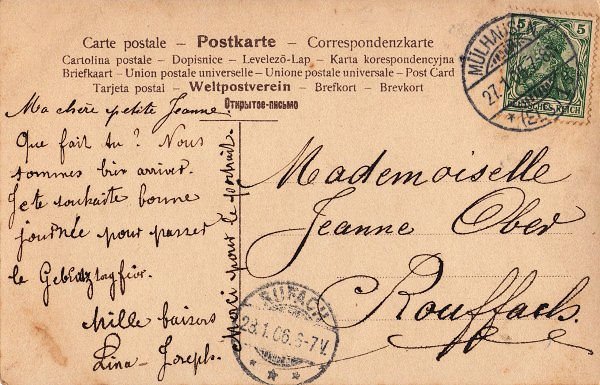 Carte postale – Postkarte – Correspondenzkarte
Cartolina postale – Dopisnice – Levelező-Lap – Karta korespondencyjna
Briefkaart - Union postale universelle - Unione postale universale - Post Card
Tarjeta postal – Weltpostverein – Brefkort - Brevkort
Открытое-письмо
Ma chère petite Jeanne.
Que fait tu? Nous
sommes bien arriver.
Je te souhaite bonne
journée pour passer
le
Mille baisers
Lina - Joseph.
Merci pour le portrait.
Mademoiselle
Jeanne Ober
Rouffach.
5 5
DEUTSCHES REICH
MÜLHAUSEN
27.1.
(ELS.)
RUFACH
28.1.06.6-7V.